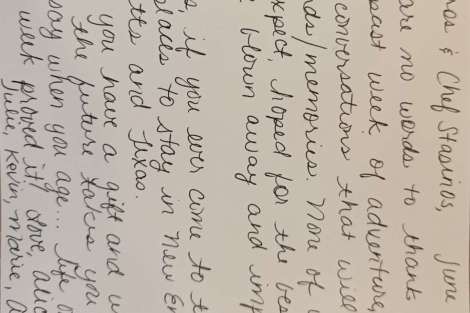 June
nos & Chef Stasinos,
are no words to thank
past week of adventure,
conversations that will
nds/memories. None of
xpect, hoped for the bes
blown away and imp
s, if you ever come to t
places to stay in New En
tts and Texas.
you have a gift and w
the future takes you
say when you age... life o
week proved it! Love, alic
Julie, Kevin, Marie, a